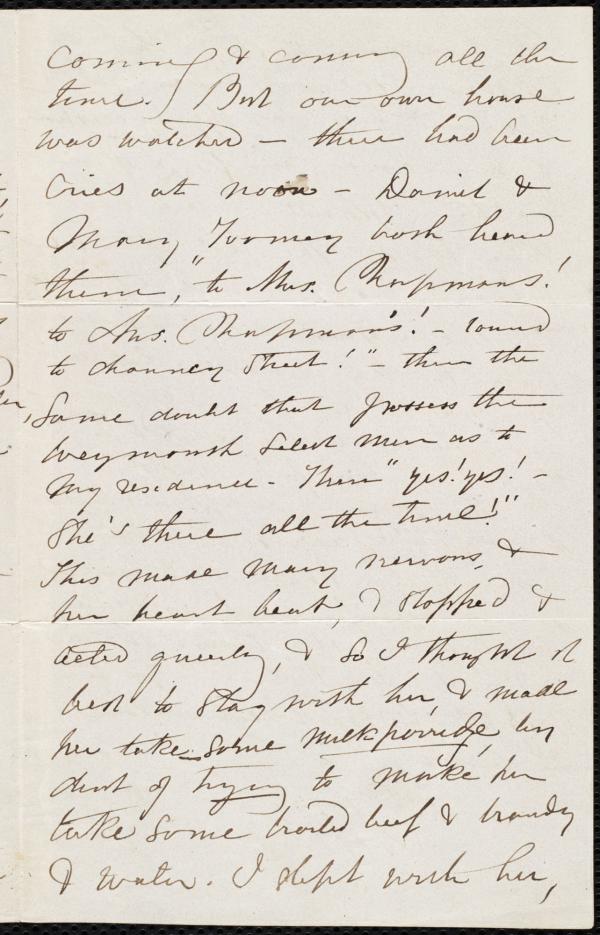 coming & coming all the
time. But our own house
was watched — there had been
cries at noon — Daniel &
Mary Toomey both heard
them, "to Mrs. Chapmans!
to Mrs. Chapman's! — round
to Chauncey Street!" — then the
same doubt that possess the
Weymouth Select men as to
my residence — Then "yes! yes! —
She's there all the time!"
This made Mary nervous, &
her heart beat, & stopped &
acted queerly, & so I thought it
best to stay with her, & made
her take some milkporridge by
dint of trying to make her
take some broiled beef & brandy
& water. I slept with her,